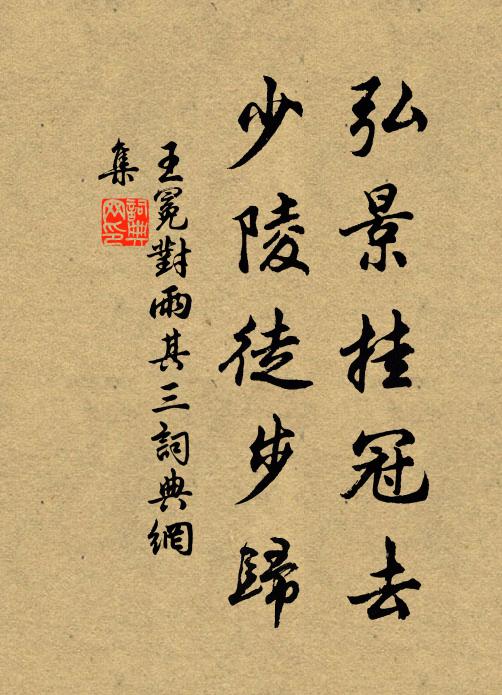 弘景挂冠去
少陵徒步歸
王冕對雨其三詞典網
集
詞典网印